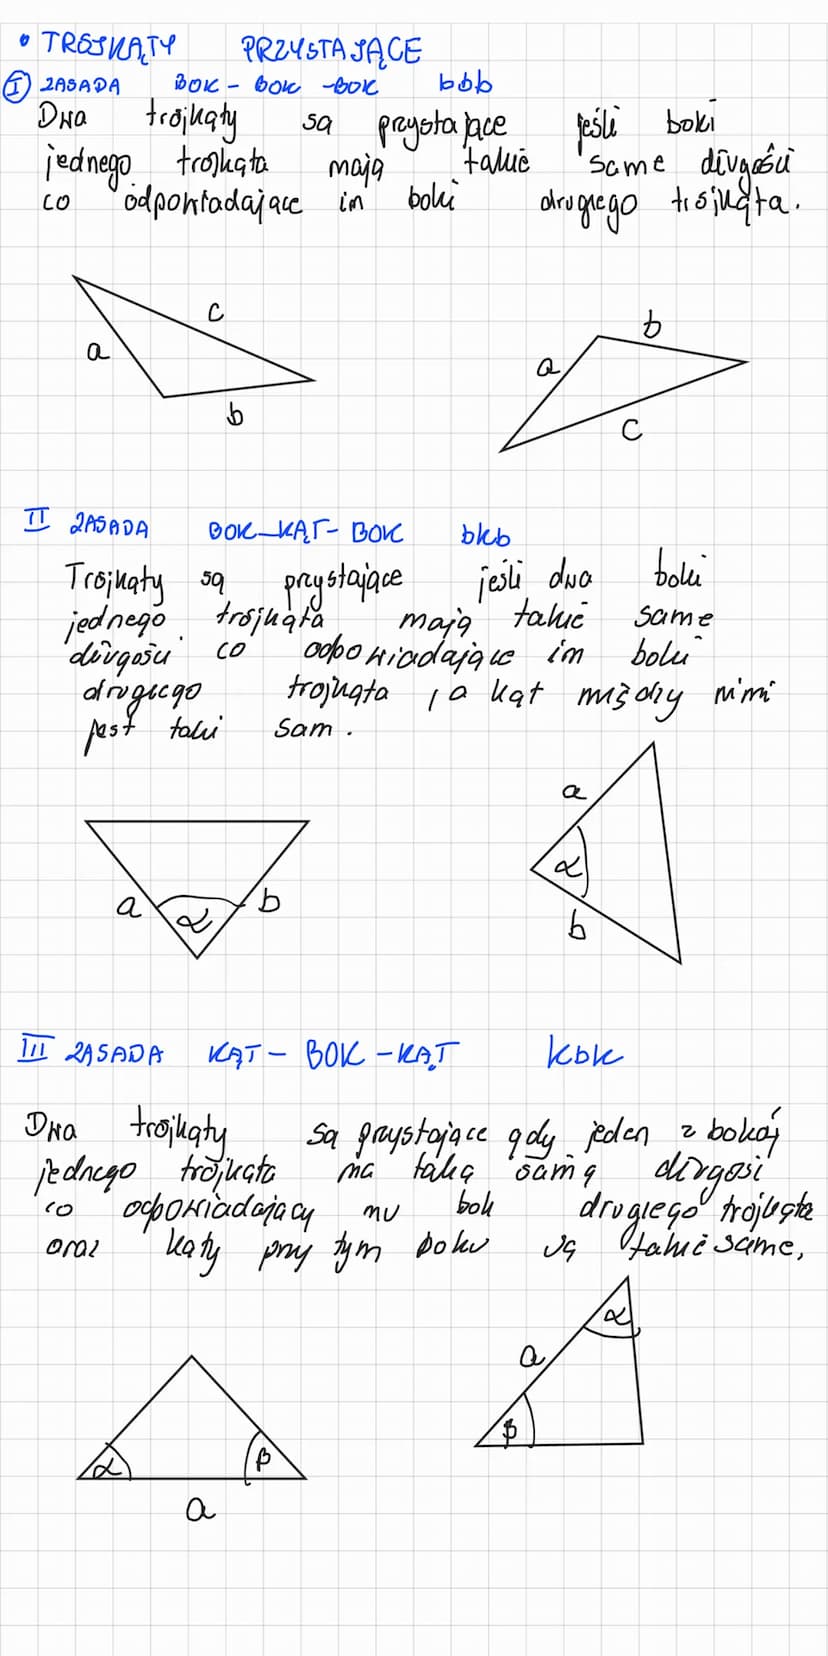 • TRÓJKĄTY PRZYSTAJĄCE
I ZASADA BOK - BOK - BOK bbb
Dwa trójkąty są przystające jeśli boki
jednego trójkąta mają takie same długości
co odpowiadające im boki drugiego trójkąta.
c
a
b
b
a
c
II ZASADA BOK-KĄT-BOK bkb
Trójkąty są przystające jeśli dwa boki
jednego trójkąta mają takie same
długości co odpowiadające im boki
drugiego trójkąta, a kąt między nimi
jest taki sam.
a
α
b
a
α
b
III ZASADA KĄT - BOK - KĄT kbk
Dwa trójkąty są przystające gdy jeden z boków
jednego trójkąta ma taką samą długość
co odpowiadający mu bok drugiego trójkąta
oraz kąty przy tym boku są takie same,
α
a
β
α
β
a